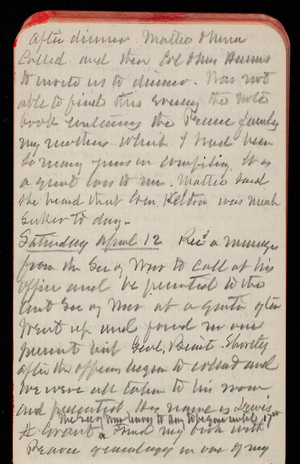 After dinner Mattie & Nina
Called and then Col & Mrs
to invite us to dinner. Was not
able to find this evening the note
book containing the Pearce family
my mothers which I had been
so many years in compiling. It is
a great loss to me. Mattie said
she heard that Gen Kelton was much
sicker to day -
Saturday April 12 Recd a message
from the Sec of War to call at his
office and be presented to the
Asst Sec of War at a quarter after
Went up and found no one
present but Genl. Benét. Shortly
after the officers began to collect and
we were all taken to his room
and presented, his name is Lewis
A Grant
Pearce genealogy in one of my